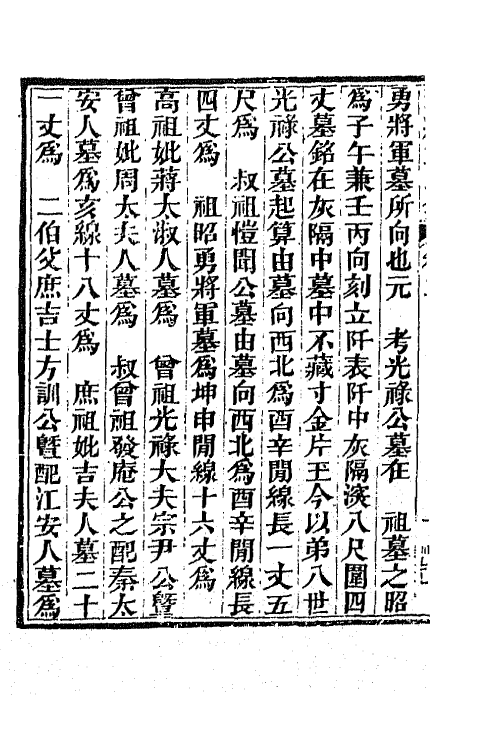 勇將軍墓所向也元　考光祿公墓在　祖墓之昭
為子午兼壬丙向刻立阡表阡中灰隔深八尺圍四
丈墓銘在灰隔中墓中不藏寸金片玉今以弟八世
光祿公墓起算由墓向西北為酉辛閒線長一丈五
尺為　叔祖愷聞公墓由墓向西北為酉辛閒線長
四丈為　祖昭勇將軍墓為坤申閒線十六丈為
高祖妣蔣太淑人墓為　曾祖光祿大夫宗尹公曁
曾祖妣周太夫人墓為　叔曾祖發庵公之配秦太
安人墓為亥線十八丈為　庶祖妣吉夫人墓二十
一丈為　二伯父庶吉士方訓公曁配江安人墓為